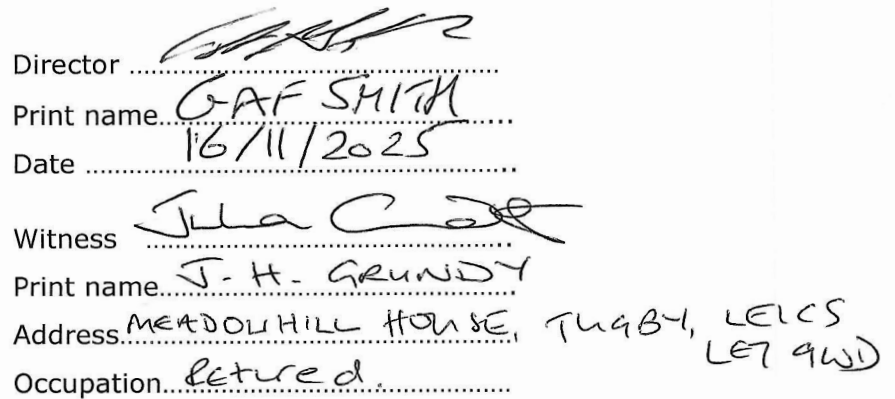 Director
Print name GAF SMITH
Date 16/11/2025
Witness Julia
Print name J. H. GRUNDY
Address MEADOWHILL HOUSE, TUGBY, LEICS
LE7 9WD
Occupation Retired.